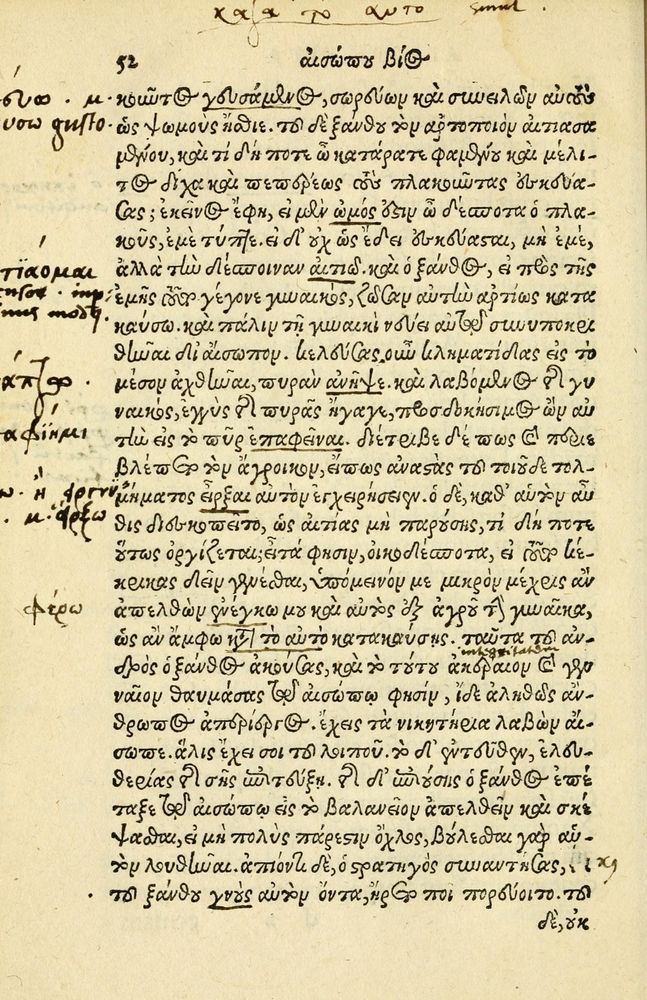 κατα το αυτο simul.
52 αἰσώπου βίος
κοιῶντος γευσάμενος, σωρεύων καὶ συνειλῶν αὐτοὺς
ὡς ψωμοὺς ἤσθιε. τοῦ δὲ ξάνθου τὸν ἀρτοποιὸν αἰτιασα
μένου, καὶ τί δή ποτε ὦ κατάρατε φαμένου καὶ μέλι-
τος δίχα καὶ πεπέρεως τοὺς πλακοῦντας ἐσκεύα-
σας; ἐκεῖνος ἔφη, εἰ μὲν ὠμός ἐστιν ὦ δέσποτα ὁ πλα-
κοῦς, ἐμὲ τύπτε. εἰ δ' οὐχ ὡς ἔδει ἐσκεύασται, μὴ ἐμέ,
ἀλλὰ τὴν δέσποιναν αἰτιῶ. καὶ ὁ ξάνθος, εἰ πρὸς τῆς
ἐμῆς τοῦτο γέγονε γυναικός, ζῶσαν αὐτὴν ἀρτίως κατα
καύσω. καὶ πάλιν τῇ γυναικὶ νεύει αὐτῷ συνυποκρι
θῆναι δι' αἴσωπον. κελεύσας οὖν κληματίδας εἰς τὸ
μέσον ἀχθῆναι, πυρὰν ἀνῆψε. καὶ λαβόμενος τῆς γυ
ναικός, ἐγγὺς τῆς πυρᾶς ἤγαγε, προσδοκήσιμος ὢν αὐ
τὴν εἰς τὸ πῦρ ἐπαφεῖναι. διέτριβε δέ πως καὶ περιε
βλέπετο τὸν ἄγροικον, εἴπως ἀναστὰς τοῦ τοιοῦδε τολ-
μήματος εἷρξαι αὐτὸν ἐγχειρήσειεν. ὁ δέ, καθ' αὑτὸν αὖ
θις διεσκοπεῖτο, ὡς αἰτίας μὴ παρούσης, τί δή ποτε
οὗτος ὀργίζεται; εἶτά φησιν, οἰκοδέσποτα, εἰ τοῦτο κέ-
κρικας δεῖν γενέσθαι, ὑπόμεινόν με μικρὸν μέχρις ἂν
ἀπελθὼν ἐνέγκω μου καὶ αὐτὸς ἐξ ἀγροῦ τὴν γυναῖκα,
ὡς ἂν ἄμφω κατὰ τὸ αὐτὸ κατακαύσῃς. ταῦτα τοῦ ἀν-
δρὸς ὁ ξάνθος ἀκούσας, καὶ τὸ τούτου ἀκέραιον καὶ γεν
ναῖον θαυμάσας τῷ αἰσώπῳ φησίν, ἴδε ἀληθῶς ἄν-
θρωπος ἀπερίεργος. ἔχεις τὰ νικητήρια λαβὼν αἴ-
σωπε. ἅλις ἔχει σοι τοῦ λοιποῦ. τὸ δ' ἐντεῦθεν, ἐλευ-
θερίας τῆς σῆς ἐπιτεύξῃ. τῆς δ' ἐπιούσης ὁ ξάνθος ἐπέ
ταξε τῷ αἰσώπῳ εἰς τὸ βαλανεῖον ἀπελθεῖν καὶ σκέ
ψασθαι, εἰ μὴ πολὺς πάρεστιν ὄχλος, βούλεσθαι γὰρ αὐ-
τὸν λουθῆναι. ἀπιόντι δέ, ὁ στρατηγὸς συναντήσας,
τοῦ ξάνθου γνοὺς αὐτὸν ὄντα, ἤρετο ποῖ πορεύοιτο. τοῦ
δέ, οὐκ
γυσω gusto.
τϊαομαι
απτω.
αφϊημι
φέρω
integritatem